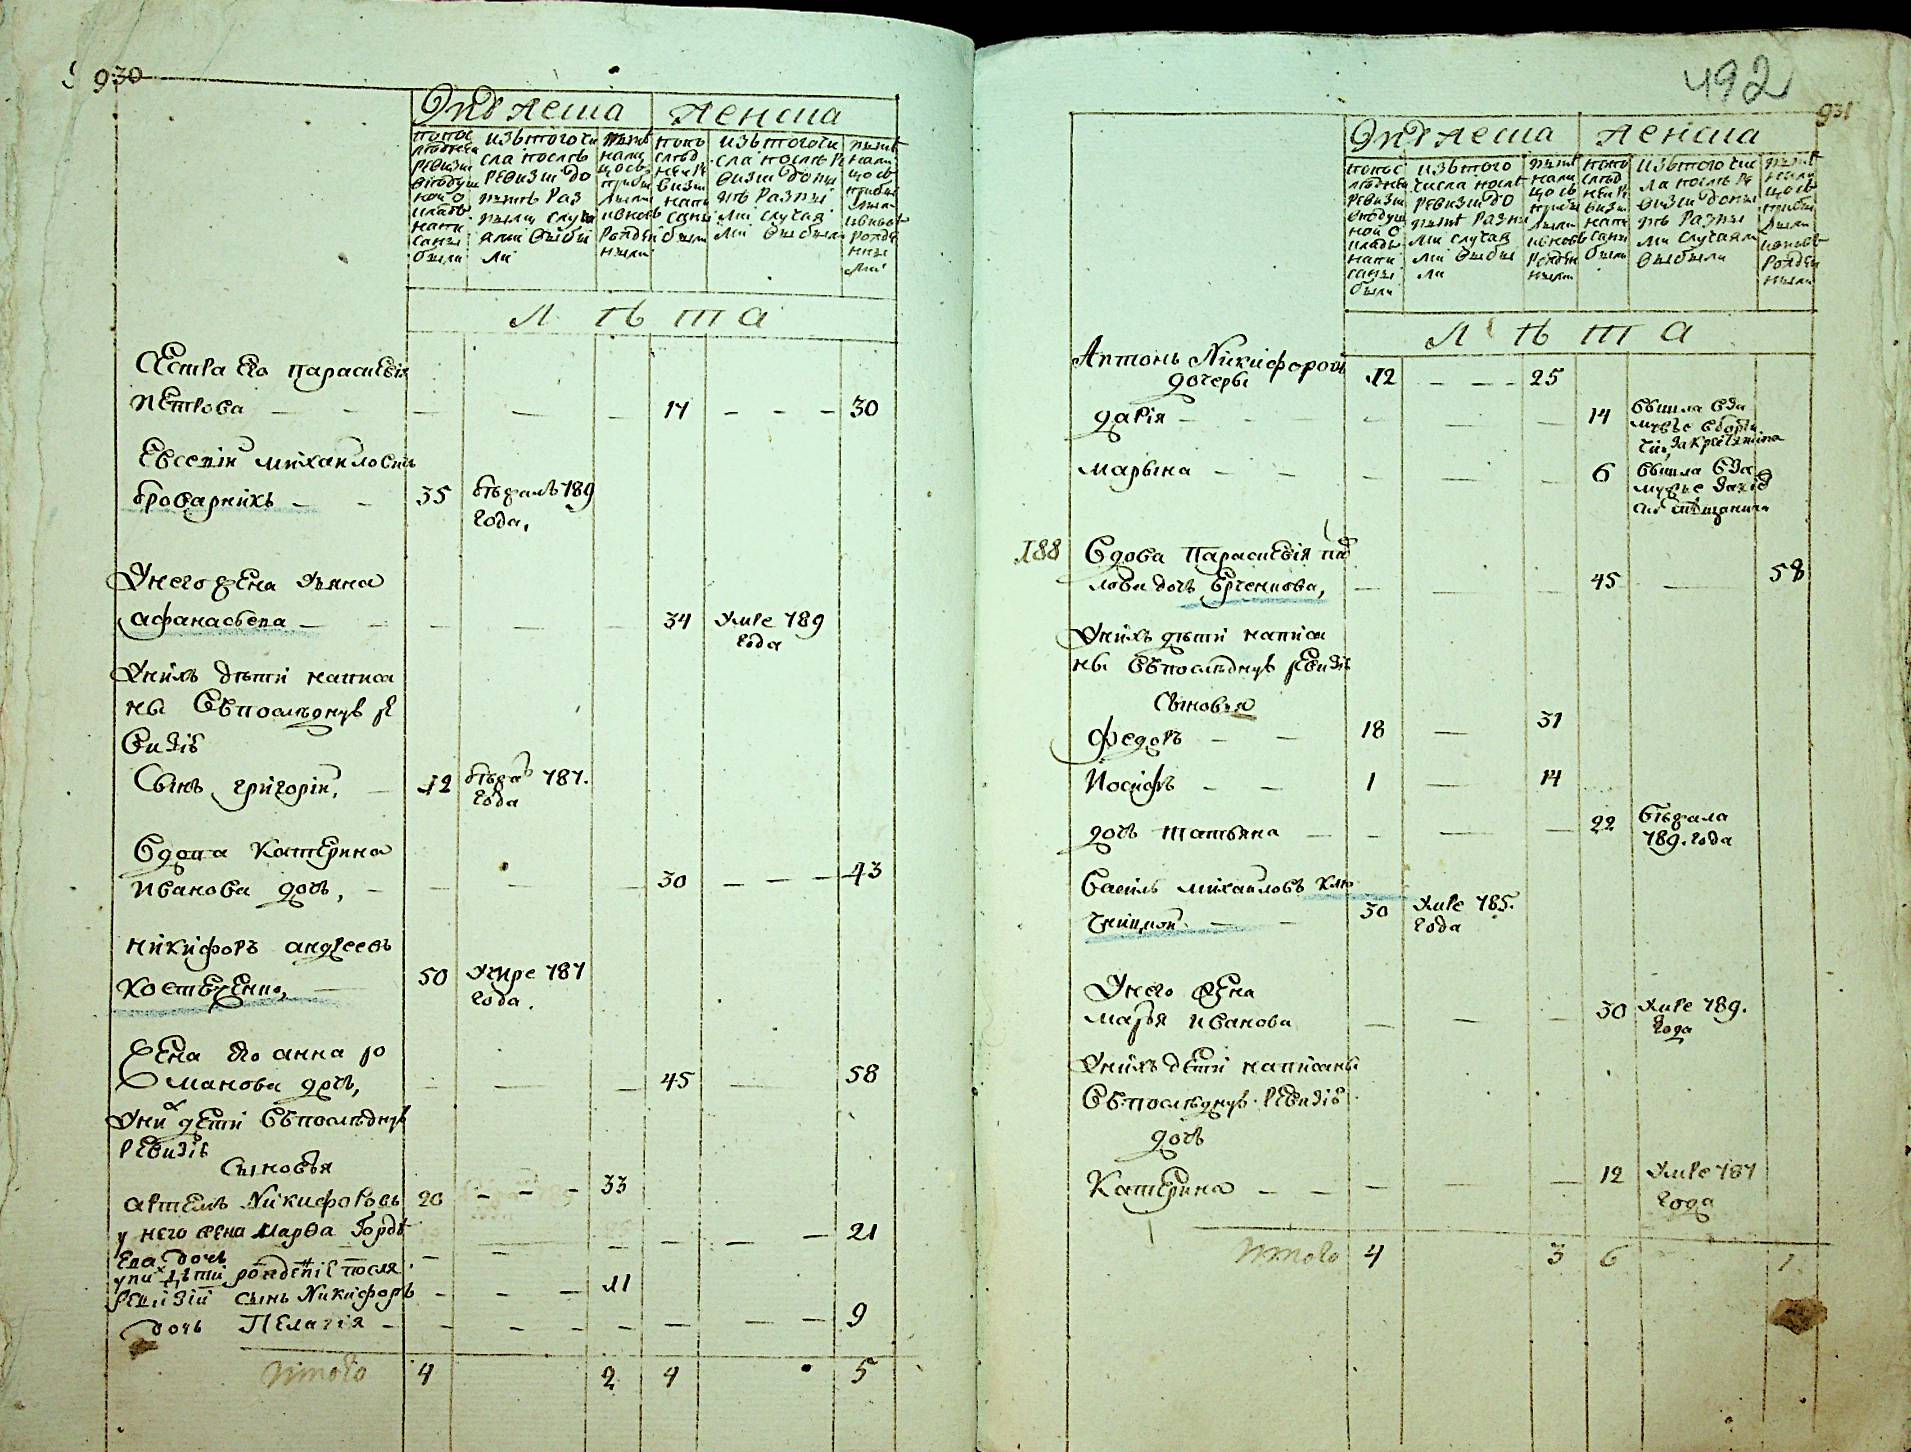 930
Мужеска Женска
по пос
ледней
ревизии
в подуш
ной о
кладъ
напи
саны
были
изъ того чи
сла после
ревизии до
ныне раз
ными случа
ями выбы
ли
ныне
налицо
съ
прибы
лыми
и вновь
рожден
ными
по по
след
ней ре
визии
напи
саны
были
изъ того чи
сла после ре
визии до ны
не разны
ми случая
ми выбыли
ныне
нали
цо съ
прибы
лыми
и вновь
рожде
нны
ми
Л ѣ т а
Сестра Его Параскевія
Петрова — — — — — 17 - - - 30
Евсевій михайловъ
броварникъ — — 35 бѣжалъ 789
года,
У него жена Уляна
афанасьева — — — — — 34 Умре 789
года
У нихъ дѣти написа
ны въ последнуѣ ре
визіѣ
Сынъ григорій, — 12 бѣжа 787.
года
Вдова катерина
Иванова дочь, — — — — 30 - - - 43
никифоръ андреевъ
Костюченко, — 50 Умре 787
года.
Жена Его анна ро
манова дочь, — — — 45 — 58
У них дети въ последнуѣ
ревизіѣ
Сыновья
артемъ Никифоровъ 20 - - - 33
у него жена Марѳа Горде
ева дочь — — — — — — — 21
у них дѣти рожденіе после
ревизіи сынъ Никифоръ - - — 11
дочь Пелагія - — - - — — — — 9
Итого 4 2 4 5
492
931
Мужеска Женска
по пос
ледней
ревизии
в подуш
ной о
кладъ
напи
саны
были
изъ того
числа после
ревизии до
ныне разны
ми случая
ми выбы
ли
ныне
нали
цо съ
прибы
лыми
и вновь
рожден
ными
по по
след
ней ре
визии
напи
саны
были
изъ того чис
ла после ре
визии до ны
не разны
ми случаями
выбыли
ныне
нали
цо съ
прибы
лыми
и вновь
рожден
ными
Л ѣ т а
Антонъ Никифоровъ 12 - - - 25
дочери
дарія — — — — 14 вышла в за
мужье
марына — — — — — 6 вышла в за
мужье
188 Вдова Параскевія па
лова дочь Ерченкова, — — — 45 — 58
У нихъ дѣти написа
ны въ последнуѣ ревизіѣ
Сыновья
Федоръ — — 18 — 31
Иосифъ — — 1 — 14
дочь татьяна — — — — 22 бѣжала
789. года
василь михайловъ клю
чницкой — — 30 Умре 785.
года
У него жена
марья иванова — — — 30 Умре 789.
года
У нихъ дети написаны
въ последнуѣ ревизіѣ
дочь
Катерина — — — — — 12 Умре 787
года
Итого 4 3 6 1